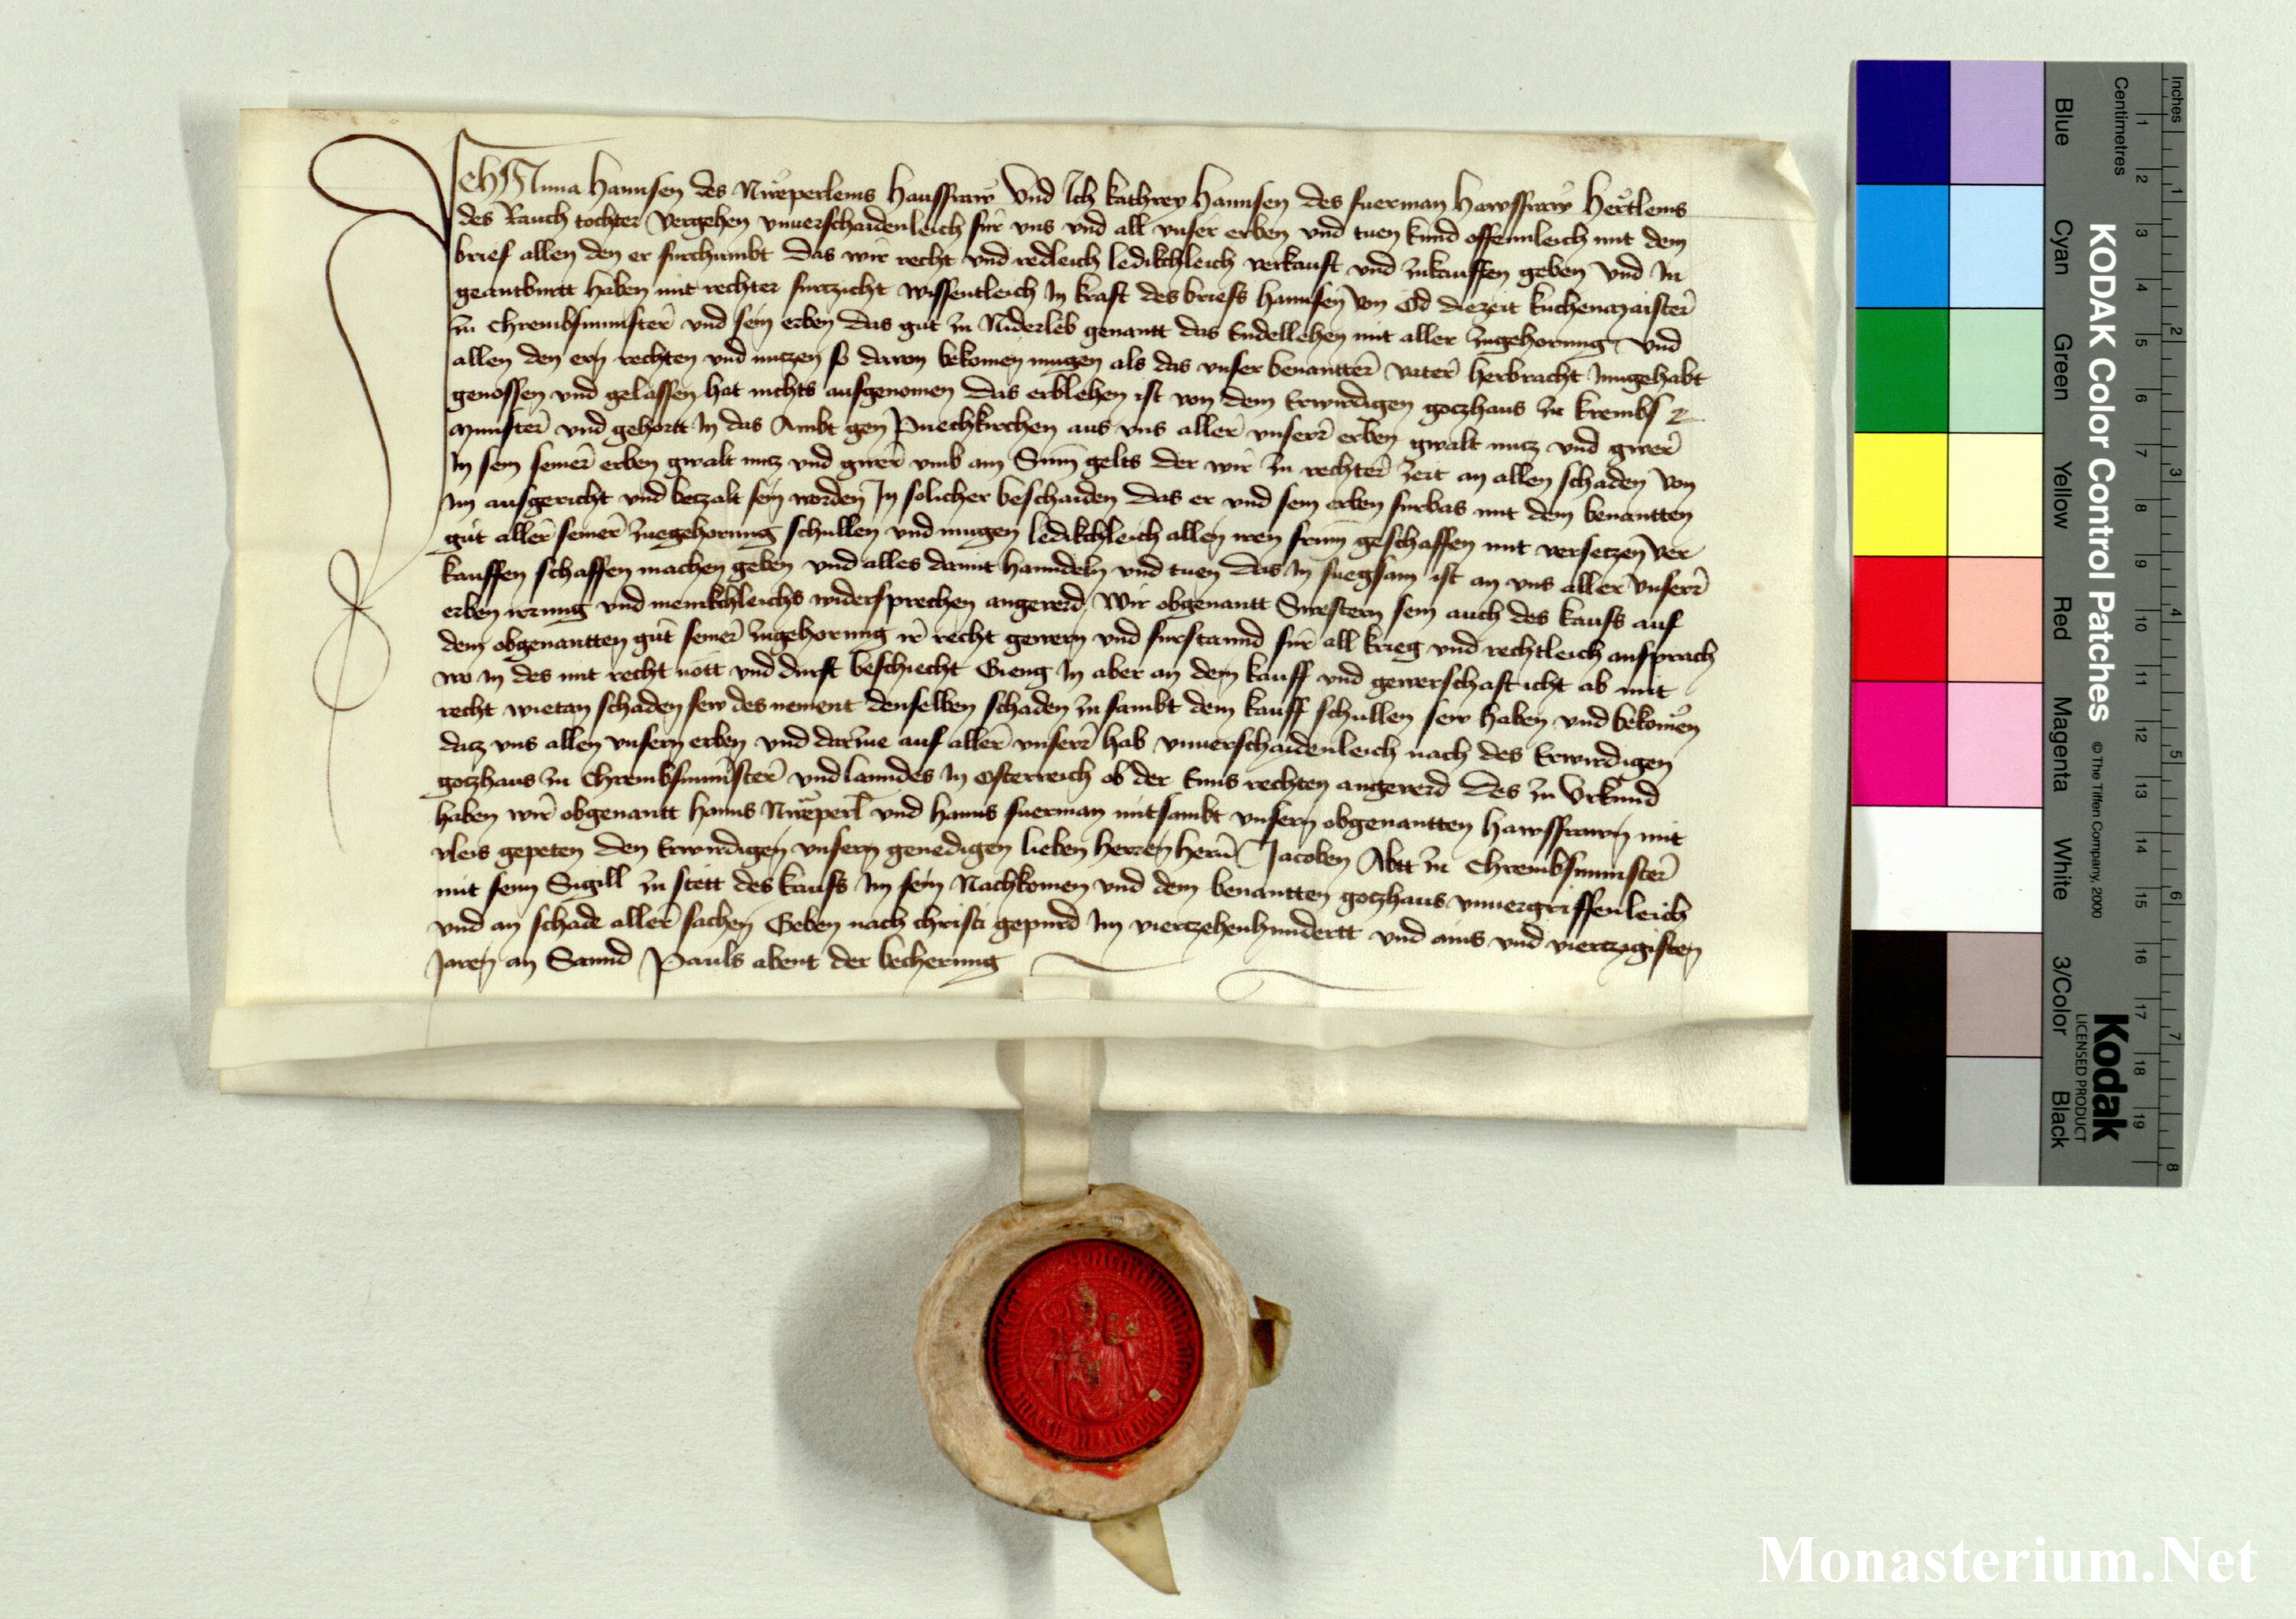 Ich Anna Hannsen des Nweperleins Hausfraw Und Ich kathrey Hannsen des fuerman Hawsfraw Hertleins
des Rauch tochter Vergehen vnuerschaidenleich für vns vnd all vnser erben vnd tuen kund offennleich mit dem
brief allen den er furchumbt das wir recht vnd redleich ledikchleich verkauft vnd zukauffen geben vnd In
geantburtt haben mit rechter furczicht wissentleich In kraft des briefs hannsen von Öd diezeit kuchenmaister
zu Chrembsmunster vnd sein erben das gut zu Niderleb genantt das Endellehen mit aller zugehorung vnd
allen den ern rechten vnd nutzen so dauon bekomen mugen als das vnser benantter vater herbracht Inngehabt
genossen vnd gelassen hat nichts ausgenomen das erblehen ist von dem Erwirdigen goczhaus zu krembs
munster vnd gehortt In das Ambt gen Puechkirchen aus vns aller vnserr erben gwalt nutz vnd gwer
In sein seiner erben gwalt nutz vnd gwer vmb ain Sum gelts der wir zu rechter zeit an allen schaden von
Im ausgericht vnd betzalt sein worden In solicher beschaiden das er vnd sein erben furbas mit dem benantten
gut aller seiner zuegehorung schullen vnd mugen ledikchleich allen iren frum geschaffen mit versetzen ver
kauffen schaffen machen geben vnd alles damit hanndeln vnd tuen das In fuegsam ist an vns aller vnserr
erben irrung vnd menikchleichs widersprechen angeuerd Wir obgenantt Swestern sein auch des kaufs auf
dem obgenantten gut seiner zugehorung ir recht gewern vnd furstannd für all krieg vnd rechtleich ansprach
wo In des mit recht nott vnd durft beschiecht Gieng In aber an dem kauff vnd gewerschaft icht ab mit
recht wietan schaden sew des nement denselben schaden zu sambt dem kauff schullen sew haben vnd bekomen
datz vns allen vnsern erben vnd darzue auf aller vnserr hab vnuerschaidenleich nach des Erwirdigen
gotzhaus zu Chrembsmunster vnd lanndes In Osterreich ob der Enns rechten angeuerd Des zu Vrkund
haben wir obgenantt Hanns Nweperl vnd hanns fuerman mitsambt vnsern obgenantten Hawsfrawn mit
vleis gepeten den Erwirdigen vnsern genedigen lieben herren hern Jacoben Abtt zu Chrembsmunster
mit seim Sigill zu stett des kaufs Im sein Nachkomen vnd dem benantten gotzhaus vnuergriffenleich
vnd an schade aller sachen Geben nach christi gepurd Im viertzehenhundertt vnd ains vnd viertzigisten
Jaren an Sannd Pauls abent der becherung
Inches
Centimetres
1 2 3 4 5 6 7 8
1 2 3 4 5 6 7 8 9 10 11 12 13 14 15 16 17 18 19
KODAK Color Control Patches © The Tiffen Company, 2000
Kodak
LICENSED PRODUCT
Blue Cyan Green Yellow Red Magenta White 3/Color Black
Monasterium.Net